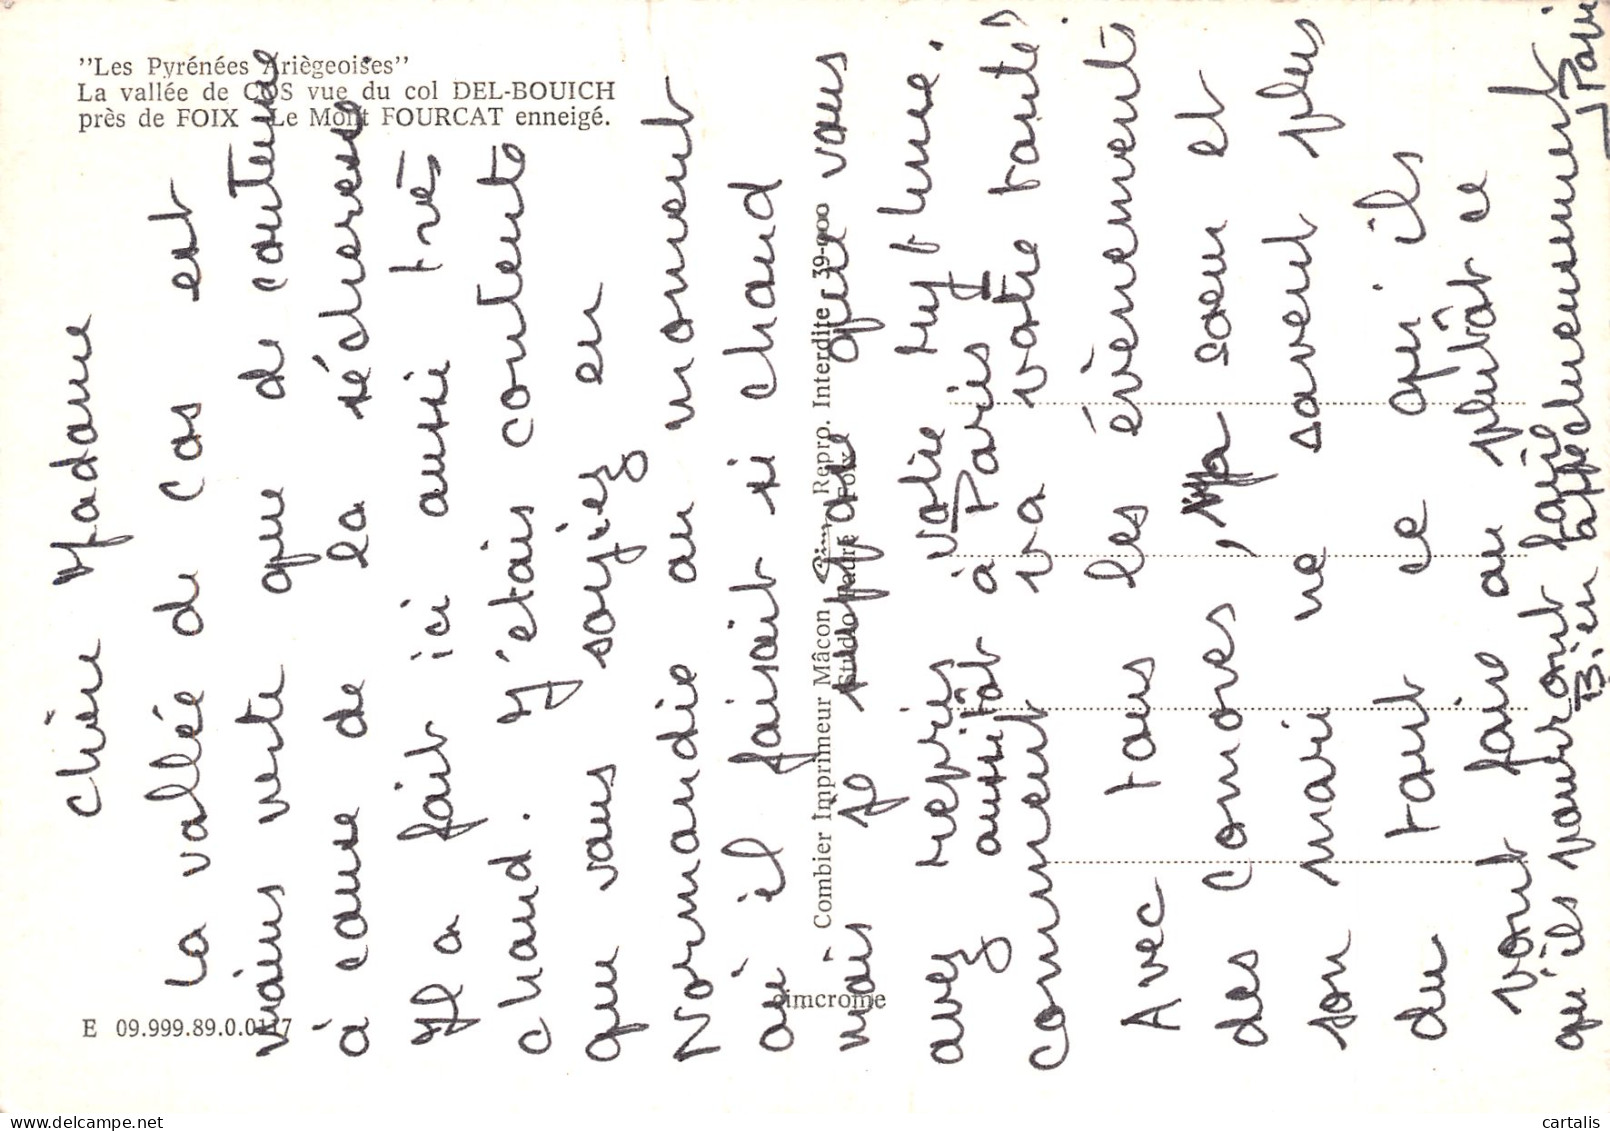 "Les Pyrénées Ariègeoises"
La vallée de COS vue du col DEL-BOUICH
près de FOIX Le Mont FOURCAT enneigé.
E 09.999.89.0.0117
Combier Imprimeur Mâcon Cim Repro. Interdite 39-000
Studio FOIX
cimcrome
Chère Madame
La vallée de Cos est
moins verte que de coutume
à cause de la sécheresse
Il a fait ici aussi très
chaud. J'étais contente
que vous soyiez en
Normandie au moment
où il faisait si chaud
mais je suppose que vous
avez repris votre rythme.
aussitôt à Paris
comment va votre santé
Avec tous les évènements
des Comores, Ma soeur et
son mari ne savent plus
du tout ce qu'ils
vont faire ou plutôt ce
qu'ils pourront faire
Bien affectueusement
cartalis